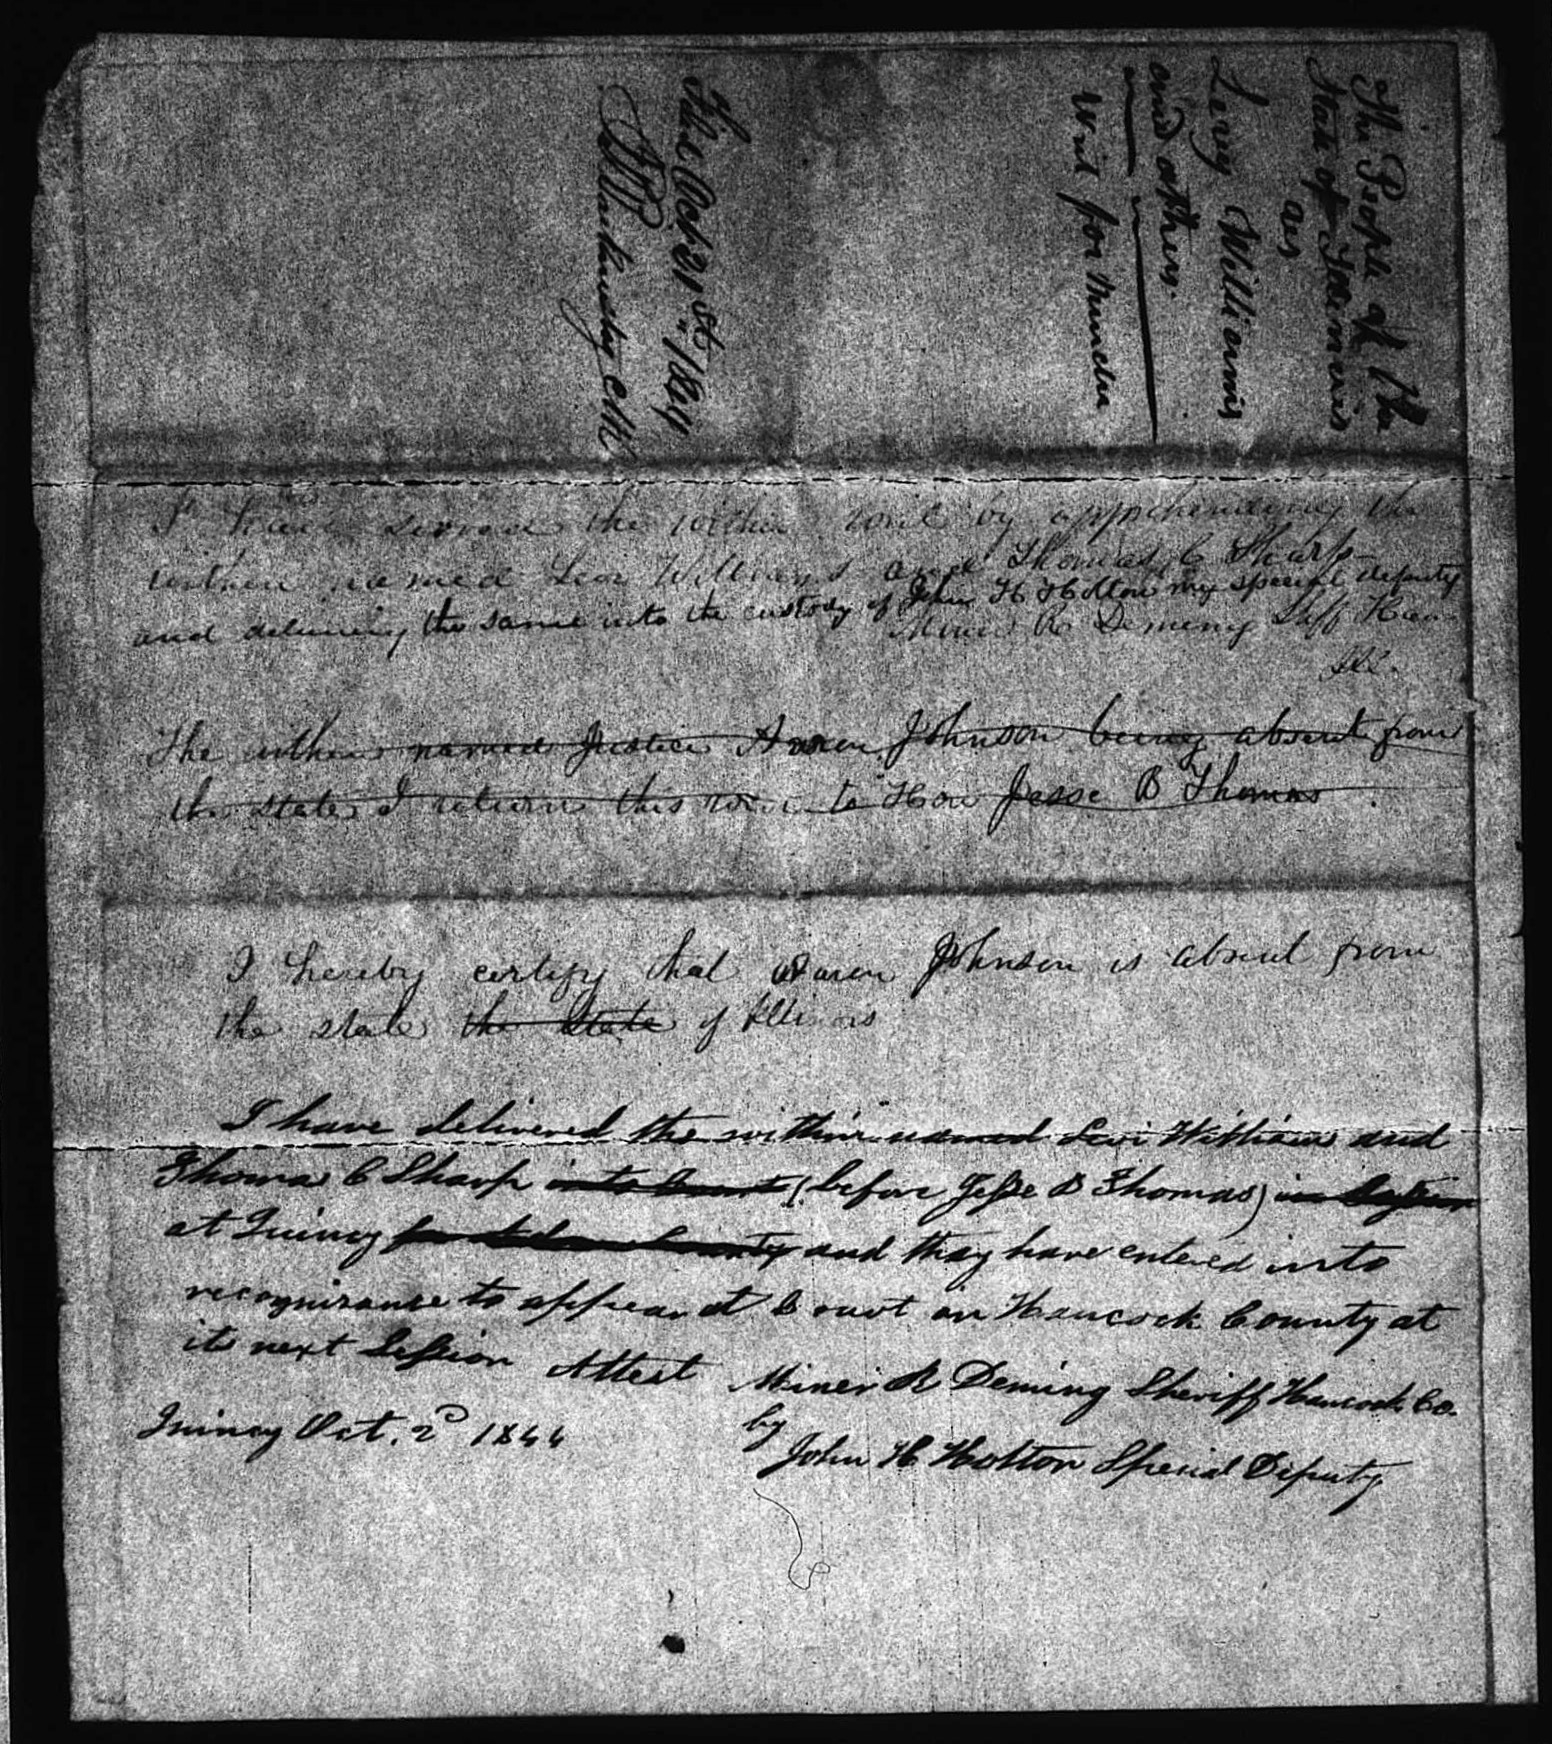 The People of the
State of Illinois
vs
Levy Williams
and others.
Writ for Murder
File Oct 21st, 1844
I have served the within writ by apprehending the
within named Levi Williams and Thomas C Sharp
and delivering the same into the custody of John H Holton my special deputy
Minor R Deming Shff Han.
Ill.
The within named Justice Aaron Johnson being absent from
the state I return this writ to Hon Jesse B Thomas
I hereby certify that Aaron Johnson is absent from
the state the State of Illinois
I have delivered the within named Levi William and
Thomas C Sharp into Court (before Jesse B Thomas) in
at Quincy for Adams County and they have entered into
recognizance to appear at Court in Hancock County at
its next Session Attest Miner R Deming Sheriff Hancock Co.
Quincy Oct. 2d 1844 by
John H Holton Special Deputy